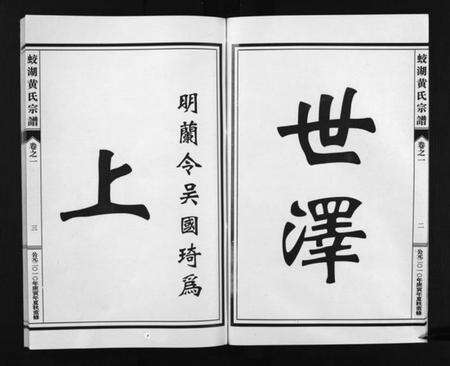 蛟湖黄氏宗譜
卷之一
二
公元二〇一〇年庚寅年夏秋重修
世澤
明蘭令吴國琦爲
上
蛟湖黄氏宗譜
卷之一
三
公元二〇一〇年庚寅年夏秋重修